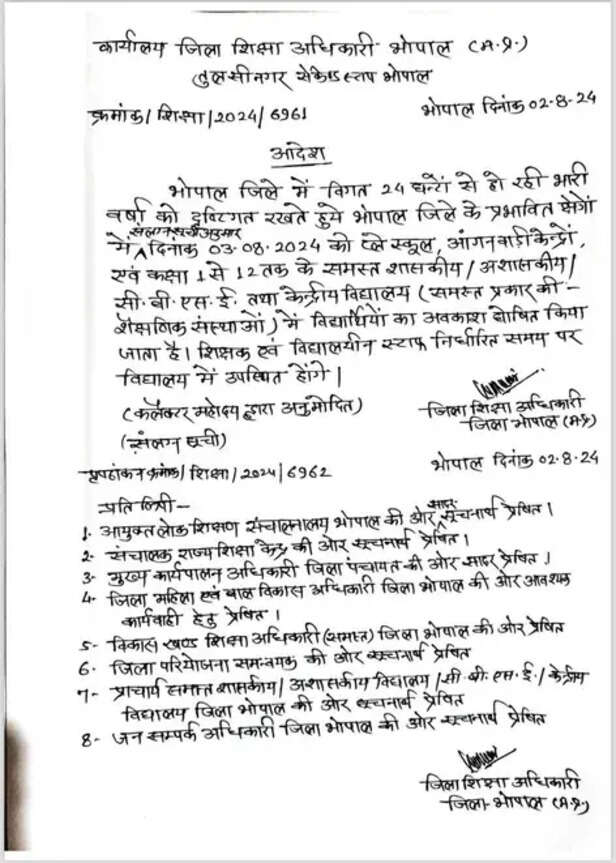 कार्यालय जिला शिक्षा अधिकारी भोपाल (म.प्र.)
तुलसीनगर सेकेण्ड स्टाप भोपाल
क्रमांक/शिक्षा/2024/6961
भोपाल दिनांक 02-8-24
आदेश
भोपाल जिले में विगत 24 घन्टों से हो रही भारी
वर्षा को दृष्टिगत रखते हुये भोपाल जिले के प्रभावित क्षेत्रों
संलग्न सूची अनुसार
में दिनांक 03.08.2024 को प्ले स्कूल, आंगनवाडी केन्द्रों,
एवं कक्षा 1 से 12 तक के समस्त शासकीय/अशासकीय/
सी.बी.एस.ई. तथा केन्द्रीय विद्यालय (समस्त प्रकार की -
शैक्षणिक संस्थाओं) में विद्यार्थियों का अवकाश घोषित किया
जाता है। शिक्षक एवं विद्यालयीन स्टाफ निर्धारित समय पर
विद्यालय में उपस्थित होंगे।
(कलेक्टर महोदय द्वारा अनुमोदित)
(संलग्न सूची)
जिला शिक्षा अधिकारी
जिला भोपाल (म.प्र.)
पृष्ठांकन क्रमांक/शिक्षा/2024/6962
भोपाल दिनांक 02-8-24
प्रतिलिपी -
1. आयुक्त लोक शिक्षण संचालनालय भोपाल की ओर सादर सूचनार्थ प्रेषित।
2- संचालक राज्य शिक्षा केन्द्र की ओर सूचनार्थ प्रेषित।
3- मुख्य कार्यपालन अधिकारी जिला पंचायत की ओर सादर प्रेषित।
4- जिला महिला एवं बाल विकास अधिकारी जिला भोपाल की ओर आवश्यक
कार्यवाही हेतु प्रेषित।
5- विकास खण्ड शिक्षा अधिकारी (समस्त) जिला भोपाल की ओर प्रेषित
6- जिला परियोजना समन्वयक की ओर सूचनार्थ प्रेषित
7- प्राचार्य समस्त शासकीय/अशासकीय विद्यालय/सी.बी.एस.ई./केन्द्रीय
विद्यालय जिला भोपाल की ओर सूचनार्थ प्रेषित
8- जन सम्पर्क अधिकारी जिला भोपाल की ओर सूचनार्थ प्रेषित
जिला शिक्षा अधिकारी
जिला- भोपाल (म.प्र.)